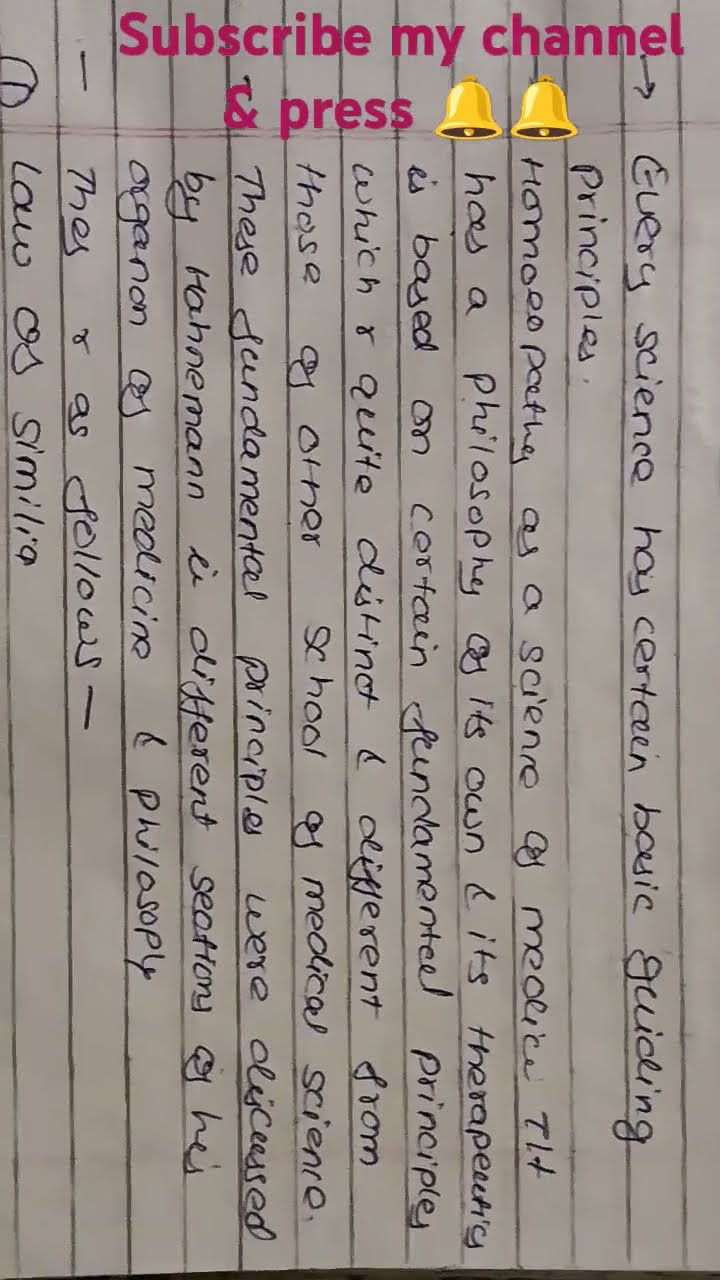 Subscribe my channel
& press 🔔🔔
→ Every science has certain basic guiding
principles.
Homoeopathy as a science of medicine Tlt
has a philosophy of its own & its therapeutics
is based on certain fundamental principles
which r quite distinct & different from
those of other school of medical science.
These fundamental principles were discussed
by Hahnemann in different sections of his
organon of medicine & philosophy
— They r as follows —
① Law of similia